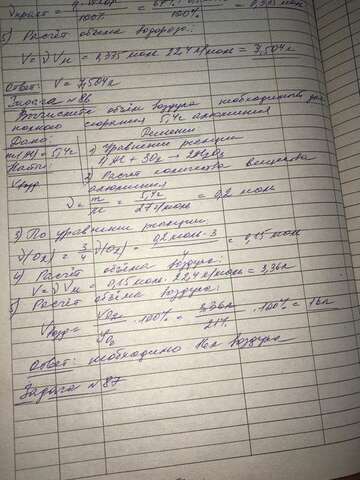 5) Расчёт объёма водорода:
V = ν · Vм = 0,335 моль · 22,4 л/моль = 7,504 л
Ответ: V = 7,504 л
Задача №86
Вычислите объём воздуха необходимого для
полного сгорания 5,4 г алюминия
Дано: Решение
m(Al) = 5,4 г 1) Уравнение реакции
Найти: 4Al + 3O2 → 2Al2O3
Vвозд 2) Расчёт количества вещества
алюминия
ν = m/M = 5,4 г / 27 г/моль = 0,2 моль
3) По уравнению реакции
ν(O2) = 3/4 ν(O2) = 0,2 моль · 3 = 0,15 моль
4) Расчёт объёма воздуха:
V = ν · Vм = 0,15 моль · 22,4 л/моль = 3,36 л
5) Расчёт объёма воздуха:
Vвозд = VO2 / φO2 · 100% = 3,36 л / 21% · 100% = 16 л
Ответ: необходимо 16 л воздуха
Задача №87